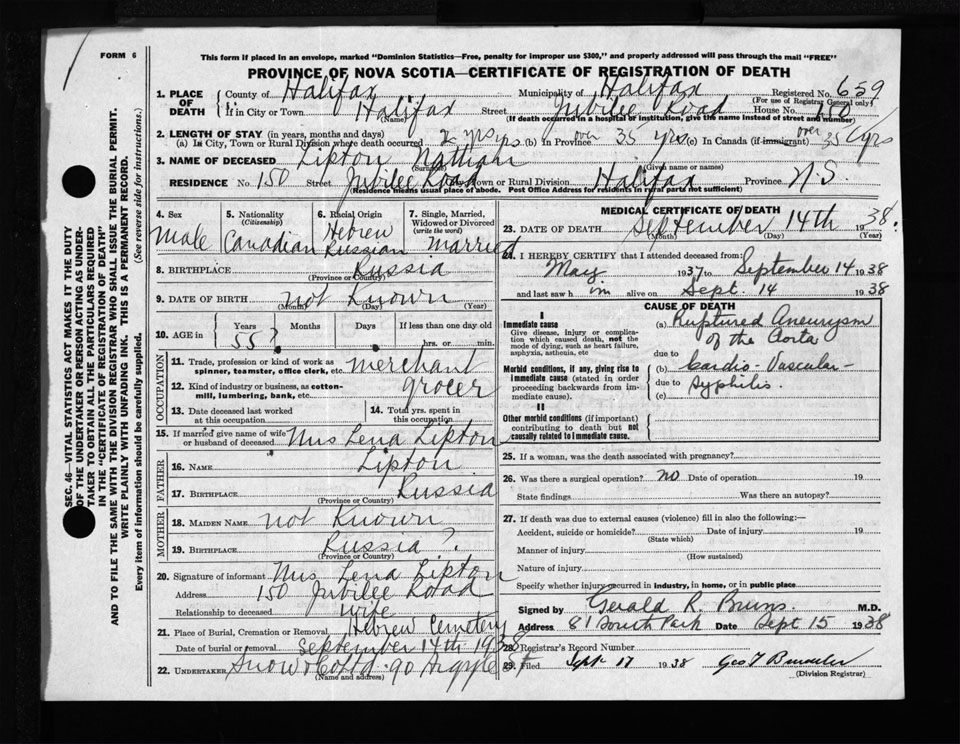 FORM 6
This form if placed in an envelope, marked "Dominion Statistics—Free, penalty for improper use $300," and properly addressed will pass through the mail "FREE"
PROVINCE OF NOVA SCOTIA—CERTIFICATE OF REGISTRATION OF DEATH
SEC. 46—VITAL STATISTICS ACT MAKES IT THE DUTY
OF THE UNDERTAKER OR PERSON ACTING AS UNDER-
TAKER TO OBTAIN ALL THE PARTICULARS REQUIRED
IN THE "CERTIFICATE OF REGISTRATION OF DEATH"
AND TO FILE THE SAME WITH THE DIVISION REGISTRAR WHO SHALL ISSUE THE BURIAL PERMIT.
WRITE PLAINLY WITH UNFADING INK. THIS IS A PERMANENT RECORD.
Every item of information should be carefully supplied. (See reverse side for instructions.)
1. PLACE OF DEATH County of Halifax Municipality of Halifax Registered No. 659
(For use of Registrar General only)
If in City or Town Halifax Street Jubilee Road House No. 150
(Name) (If death occurred in a hospital or institution, give the name instead of street and number)
2. LENGTH OF STAY (in years, months and days)
(a) In City, Town or Rural Division where death occurred 2 yrs (b) In Province over 35 yrs (c) In Canada (if immigrant) over 35 yrs
3. NAME OF DECEASED Lipton Nathan
(Surname) (Given name or names)
RESIDENCE No. 150 Street Jubilee Road City, Town or Rural Division Halifax Province N.S.
(Residence means usual place of abode. Post Office Address for residents in rural parts not sufficient)
4. Sex Male
5. Nationality (Citizenship) Canadian
6. Racial Origin Hebrew Russian
7. Single, Married, Widowed or Divorced (write the word) Married
8. BIRTHPLACE Russia
(Province or Country)
9. DATE OF BIRTH not Known
(Month) (Day) (Year)
10. AGE in Years 55? Months Days If less than one day old
hrs. or min.
OCCUPATION
11. Trade, profession or kind of work as spinner, teamster, office clerk, etc. merchant
12. Kind of industry or business, as cotton-mill, lumbering, bank, etc. grocer
13. Date deceased last worked at this occupation
14. Total yrs. spent in this occupation
15. If married give name of wife or husband of deceased Mrs Lena Lipton
FATHER
16. NAME Lipton
17. BIRTHPLACE Russia
(Province or Country)
MOTHER
18. MAIDEN NAME not Known
19. BIRTHPLACE Russia ?
(Province or Country)
20. Signature of informant Mrs Lena Lipton
Address 150 Jubilee Road
Relationship to deceased wife
21. Place of Burial, Cremation or Removal Hebrew Cemetery
Date of burial or removal September 14th 1938
22. UNDERTAKER Snow & Co Ltd. 90 Argyle St
(Name and address)
MEDICAL CERTIFICATE OF DEATH
23. DATE OF DEATH September 14th 1938.
(Month) (Day) (Year)
24. I HEREBY CERTIFY that I attended deceased from:
May 1937 to September 14 1938
and last saw h im alive on Sept. 14 1938
CAUSE OF DEATH
I
Immediate cause
Give disease, injury or complication which caused death, not the mode of dying, such as heart failure, asphyxia, asthenia, etc
(a) Ruptured Aneurysm of the Aorta
due to
Morbid conditions, if any, giving rise to immediate cause (stated in order proceeding backwards from immediate cause).
(b) Cardio-Vascular-
due to Syphilis.
(c)
II
Other morbid conditions (if important) contributing to death but not causally related to immediate cause.
25. If a woman, was the death associated with pregnancy?
26. Was there a surgical operation? no Date of operation 19
State findings Was there an autopsy?
27. If death was due to external causes (violence) fill in also the following:—
Accident, suicide or homicide? Date of injury 19
(State which)
Manner of injury
(How sustained)
Nature of injury
Specify whether injury occurred in industry, in home, or in public place
Signed by Gerald R. Burns. M.D.
Address 81 South Park Date Sept 15 1938
28. Registrar's Record Number
29. Filed Sept 17 1938 Geo
(Division Registrar)